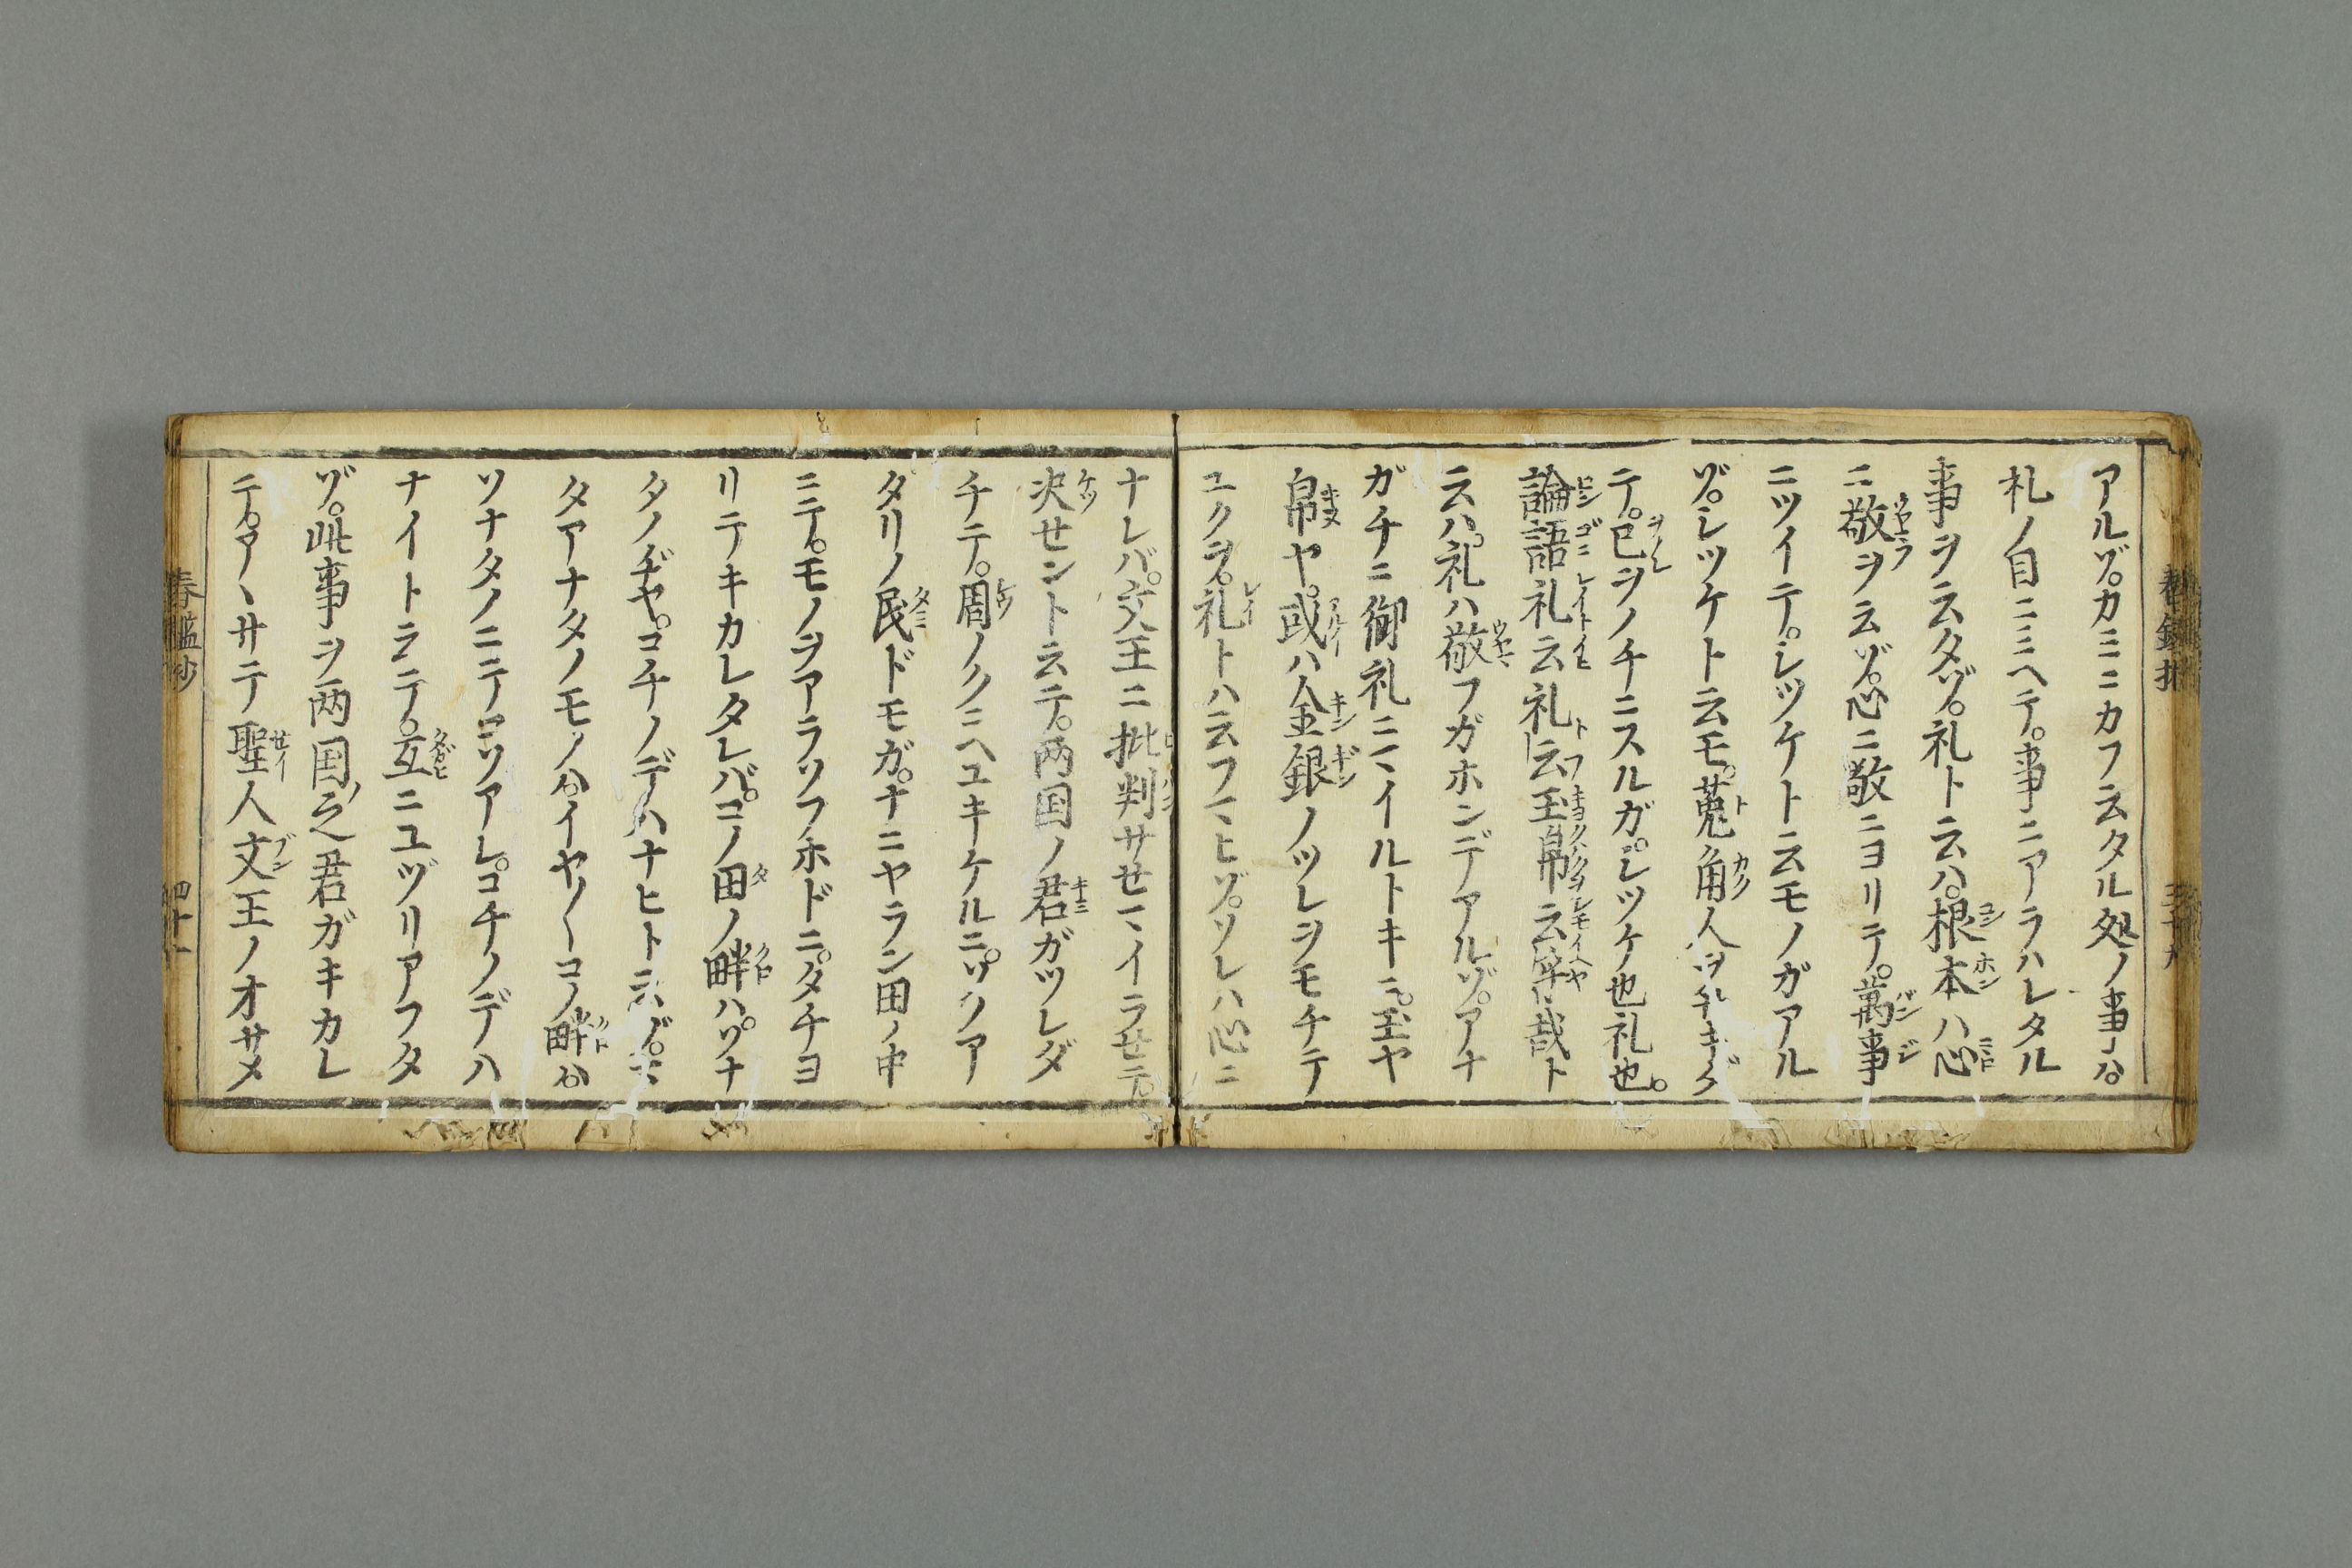 アルゾ。カミニカフ云タル処ノ事ハ。
礼ノ目ニミヘテ。事ニアラハレタル
事ヲ云タゾ。礼ト云ハ。根本ハ心
ニ敬ヲ云ゾ。心ニ敬ニヨリテ。萬事
ニツイテ。シツケト云モノガアル
ゾ。シツケト云モ。菟角人ヲ
テ。已ヲノチニスルガ。シツケ也礼也。
論語礼云礼云玉帛云乎哉ト
云ハ。礼ハ敬フガホンデアルゾ。アナ
ガチニ御礼ニマイルトキニ。玉ヤ
帛ヤ。或ハ金銀ノツレヲモチテ
ユクヲ。礼トハ云フマヒゾ。ソレハ心ニ
ナレバ。文王ニ批判サセマイラセテ。
決せントテ云テ。両国ノ君ガツレダ
チテ。周ノクニヘユキケルニ。ソノア
タリノ民ドモガ。ナニヤラン田ノ中
ニテ。モノヲアラソフホドニ。タチヨ
リテキカレタレバ。コノ田ノ畔ハ。ソナ
タノヂヤ。コチノデハナヒト云ゾ。
タアナタノモノハ。イヤ〱コノ畔ハ。
ソナタノニテコソアレ。コチノデハ
ナイトテ。互ニユヅリアフタ
ゾ。此事ヲ両国之君ガキカレ
テ。アヽサテ聖人文王ノオサメ
春鑑抄
四十一